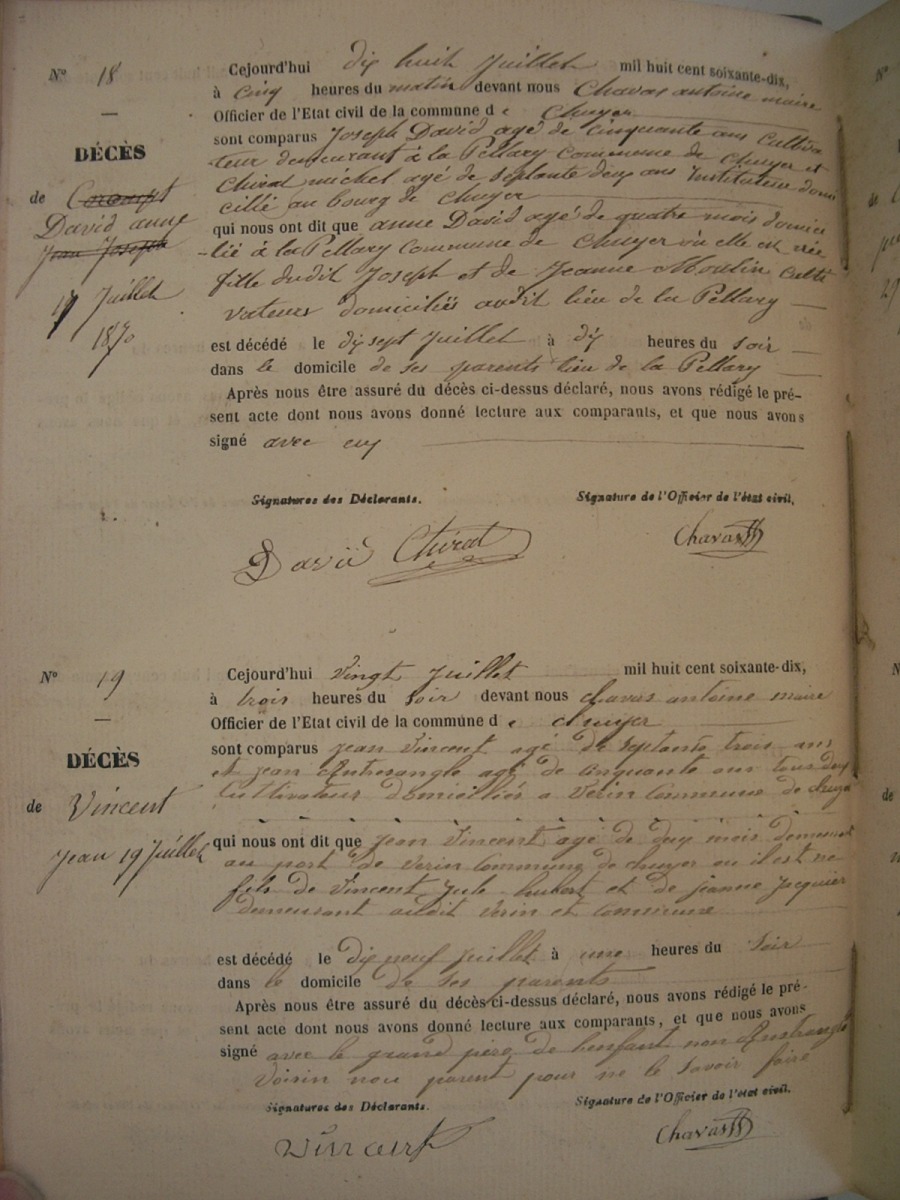 N° 18
DÉCÈS
de
David anne
17 Juillet
1870
Cejourd'hui dix huit Juillet mil huit cent soixante-dix,
à cinq heures du matin devant nous Chavas antoine maire
Officier de l'Etat civil de la commune de Chuyer
sont comparus Joseph David agé de cinquante ans Cultiva
teur demeurant à la Pellary Commune de Chuyer et
Chirat michel agé de septante deux ans Instituteur domi
cilié au bourg de Chuyer
qui nous ont dit que anne David agé de quatre mois domici
-lié à la Pellary Commune de Chuyer où elle est née
fille dudit Joseph et de Jeanne Moulin Culti
vateurs domiciliés audit lieu de la Pellary
est décédé le dix sept Juillet à dix heures du soir
dans le domicile de ses parents lieu de la Pellary
Après nous être assuré du décès ci-dessus déclaré, nous avons rédigé le pré-
sent acte dont nous avons donné lecture aux comparants, et que nous avons
signé avec eux
Signatures des Déclarants. Signature de l'Officier de l'état civil.
David Chirat Chavas
N° 19
DÉCÈS
de Vincent
Jean 19 Juillet
Cejourd'hui Vingt Juillet mil huit cent soixante-dix,
à trois heures du soir devant nous chavas antoine maire
Officier de l'Etat civil de la commune de chuyer
sont comparus jean Vincent agé de septante trois ans
et jean agé de cinquante ans tous deux
Cultivateurs Domiciliés a Verin Commune de chuyer
qui nous ont dit que jean Vincent agé de deux mois demeurant
au port de verin Commune de chuyer ou il est né
fils de Vincent jule hubert et de jeanne jacquier
demeurant audit verin et commune
est décédé le dix neuf juillet à une heures du soir
dans le domicile de ses parents
Après nous être assuré du décès ci-dessus déclaré, nous avons rédigé le pré-
sent acte dont nous avons donné lecture aux comparants, et que nous avons
signé avec le grand père de lenfant non
Voisin non parent pour ne le savoir faire
Signatures des Déclarants. Signature de l'Officier de l'état civil.
Vincent Chavas